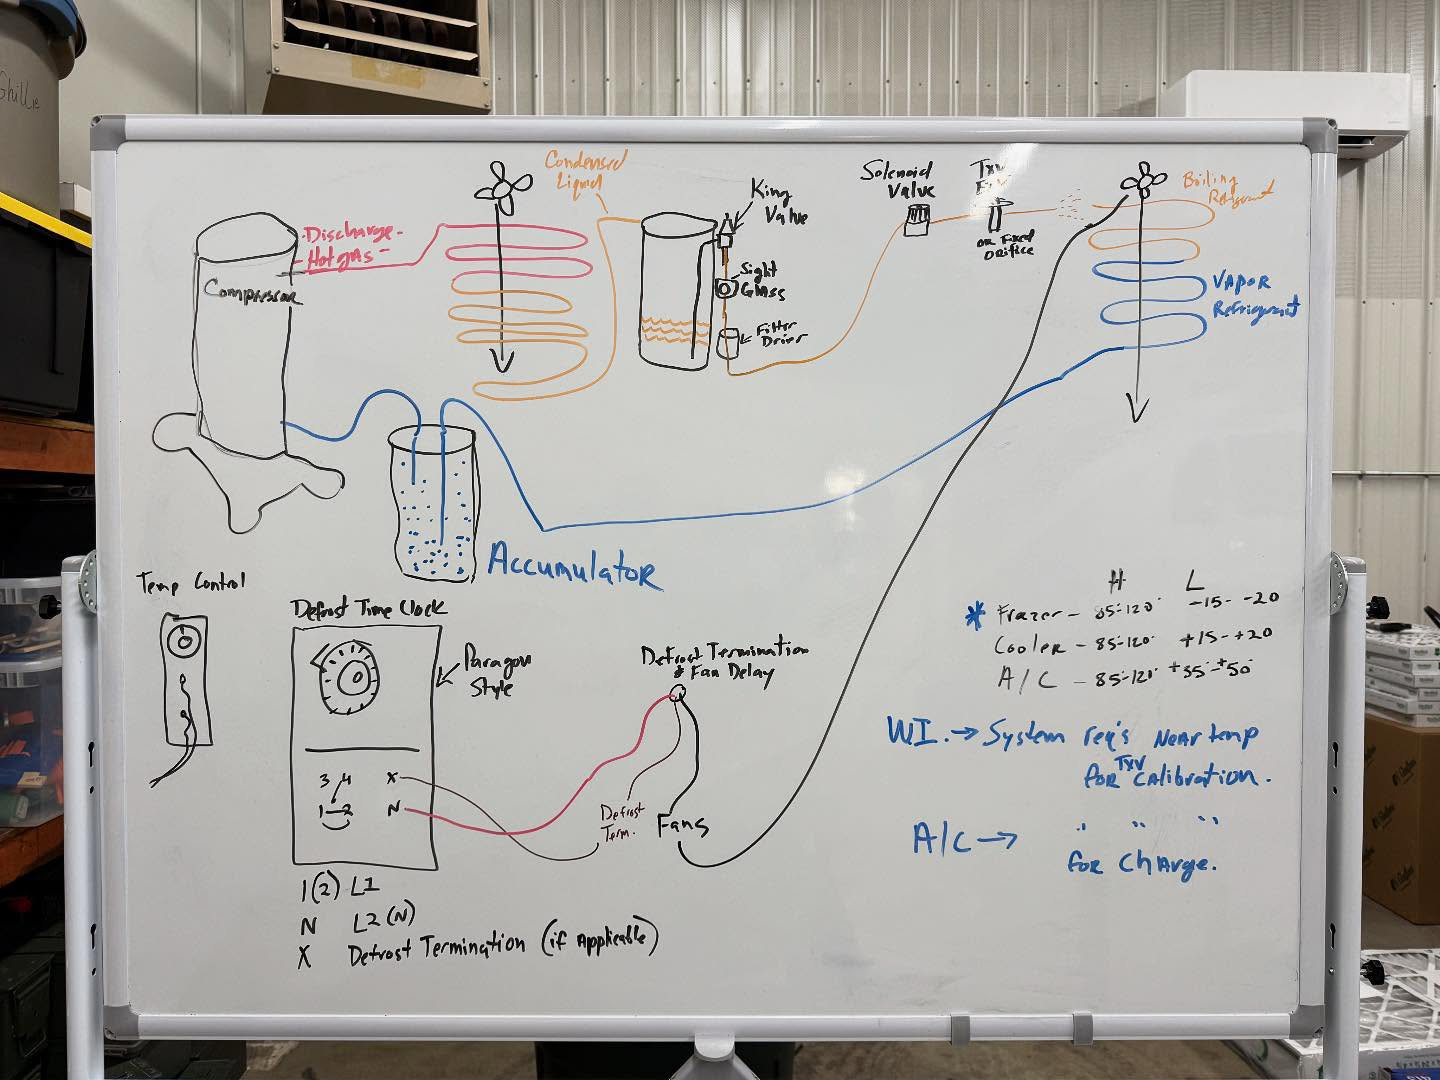 Ghillie
Condensed
Liquid
King
Valve
Solenoid
Valve
TXV
or Fixed
Orifice
Boiling
Refrigerant
-Discharge-
Hot gas-
Compressor
Sight
Glass
Filter
Drier
VAPOR
Refrigerant
Accumulator
Temp Control
Defrost Time Clock
Paragon
Style
3 4 X
1 2 N
Defrost Termination
& Fan Delay
Defrost
Term.
Fans
1(2) L1
N L2(N)
X Defrost Termination (if Applicable)
H L
* Frazer - 85°-120° -15- -20
Cooler - 85-120° +15-+20
A/C - 85°-120° +35-+50°
WI. → System req's Near temp
for TXV Calibration.
A/C → " " "
for Charge.